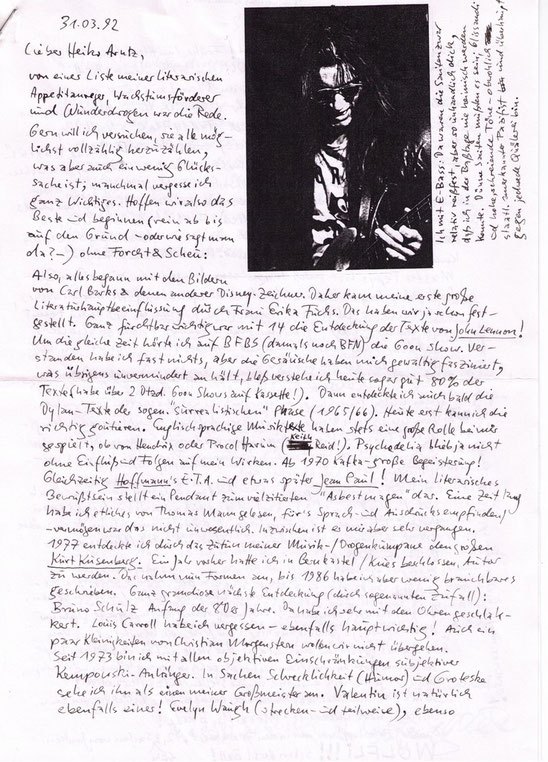 31.03.92
Lieber Heiko Arntz,
von einer Liste meiner literarischen
Appetitanreger, Wachstumsförderer
und Wunderdrogen war die Rede.
Gern will ich versuchen, sie alle mög-
lichst vollzählig herzuzählen,
was aber auch ein wenig Glücks-
sache ist, manchmal vergesse ich
ganz Wichtiges. Hoffen wir also das
Beste und beginnen (rein ab bis
auf den Grund – oder wie sagt man
da? –) ohne Forcht & Scheu:
Ich mit E-Bass: Da waren die Saiten zwar
relativ reißfest, aber so unhandlich dick,
daß ich in der Baßlage nie heimisch werden
konnte. Dünne Saiten mußten es sein, Glissandi
und hohe, schreiende Töne, obwohl ich
staatl. anerkannter Pazifist bin und überhaupt
gegen jedwede Quälerei bin.
Also, alles begann mit den Bildern
von Carl Barks & denen anderer Disney-Zeichner. Daher kam meine erste große
Literaturhauptbeeinflussung durch Frau Erika Fuchs. Das haben wir ja schon fest-
gestellt. Ganz furchtbar wichtig war mit 14 die Entdeckung der Taxte von John Lennon!
Um die gleiche Zeit hörte ich auf BFBS (damals noch BFN) die Goon Show. Ver-
standen habe ich fast nichts, aber die Geräusche haben mich gewaltig fasziniert,
was übrigens unvermindert anhält, bloß verstehe ich heute sogar gut 80% der
Texte (habe über 2 Dtzd. Goon Shows auf Cassette!). Dann entdeckte ich auch bald die
Dylan-Texte der sogen. "surrealistischen" Phase (1965/66). Heute erst kann ich die
richtig goutieren. Englischsprachige Musiktexte haben stets eine große Rolle bei mir
gespielt, ob von Hendrix oder Procol Harum (Keith Reid!). Psychedelia blieb ja nicht
ohne Einfluß und Folgen auf mein Wirken. Ab 1970 Kafka – große Begeisterung!
Gleichzeitig Hoffmann's E.T.A. und etwas später Jean Paul! Mein literarisches
Bewußtsein stellt ein Pendant zum vielzitierten "Asbestmagen" dar. Eine Zeit lang
habe ich etliches von Thomas Mann gelesen, für's Sprach- und Ausdrucksempfinden/
-vermögen war das nicht unwesentlich. Inzwischen ist er mir aber sehr vergangen.
1977 entdeckte ich durch das Zutun meiner Musik-/Drogenkumpane den großen
Kurt Kusenberg. Ein Jahr vorher hatte ich in Bernkastel/Kues beschlossen, Autor
zu werden. Das nahm nun Formen an, bis 1986 habe ich aber wenig brauchbares
geschrieben. Ganz grandiose nächste Entdeckung (durch sogenannten Zufall):
Bruno Schulz Anfang der 80er Jahre. Da habe ich sehr mit den Ohren geschlak-
kert. Louis Carroll habe ich vergessen – ebenfalls hauptwichtig! Auch ein
paar Kleinigkeiten von Christian Morgenstern wollen wir nicht übergehen.
Seit 1973 bin ich mit allen objektiven Einschränkungen subjektiver
Kempowski-Anhänger. In Sachen Schrecklichkeit (Humor) und Groteske
sehe ich ihn als einen meiner Großmeister an. Valentin ist natürlich
ebenfalls einer! Evelyn Waugh (strecken- und teilweise), ebenso